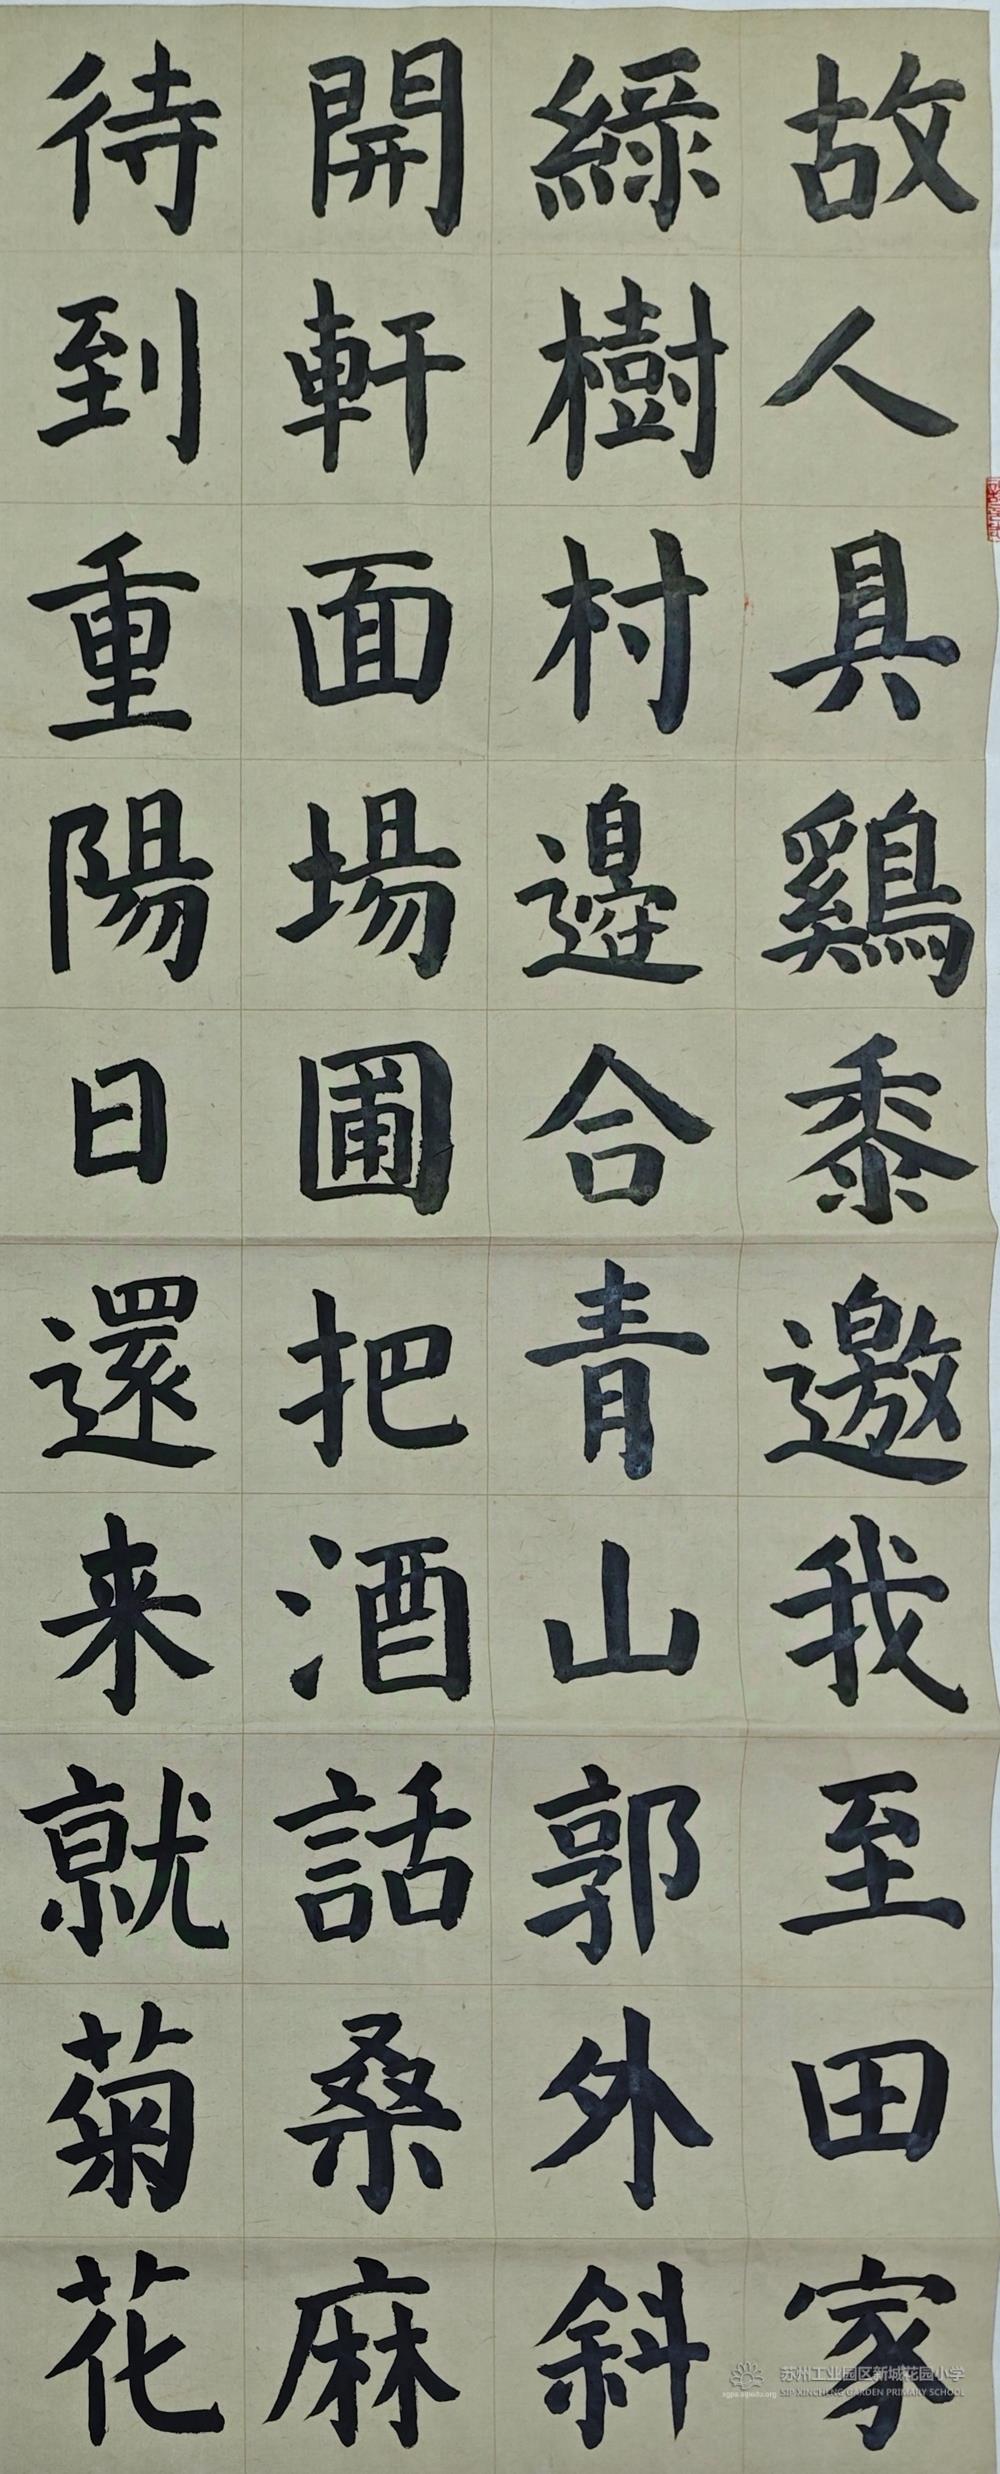 故人具鷄黍邀我至田家
綠樹村邊合青山郭外斜
開軒面場圃把酒話桑麻
待到重陽日還来就菊花
苏州工业园区新城花园小学
sgps.sipedu.org
SIP XINCHENG GARDEN PRIMARY SCHOOL